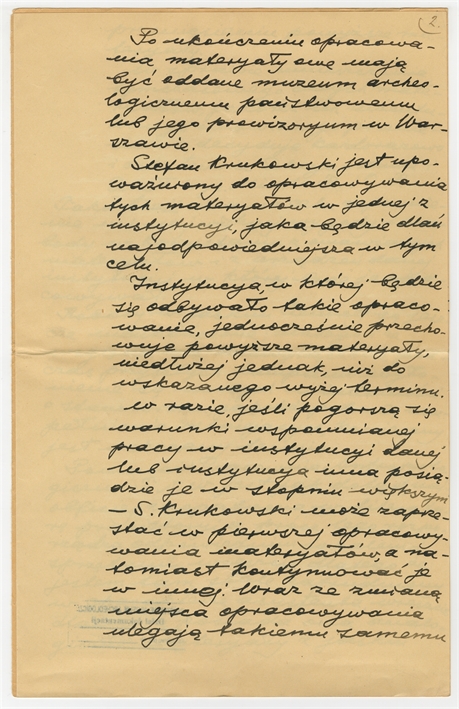 2.
Po ukończeniu opracowa-
nia materyały owe mają
być oddane muzeum archeo-
logicznemu państwowemu
lub jego prowizoryum w War-
szawie.
Stefan Krukowski jest upo-
ważniony do opracowywania
tych materyałów w jednej z
instytucyi, jaka będzie dlań
najodpowiedniejsza w tym
celu.
Instytucya, w której będzie
się odbywało takie opraco-
wanie, jednocześnie przecho-
wuje powyższe materyały,
niedłużej jednak, niż do
wskazanego wyżej terminu.
W razie, jeśli pogorszą się
warunki wspomnianej
pracy w instytucyi danej
lub instytucya inna posią-
dzie je w stopniu większym
– S. Krukowski może zaprze-
stać w pierwszej opracowy-
wania materyałów, a na-
tomiast kontynuować je
w innej. Wraz ze zmianą
miejsca opracowywania
ulegają takiemu samemu